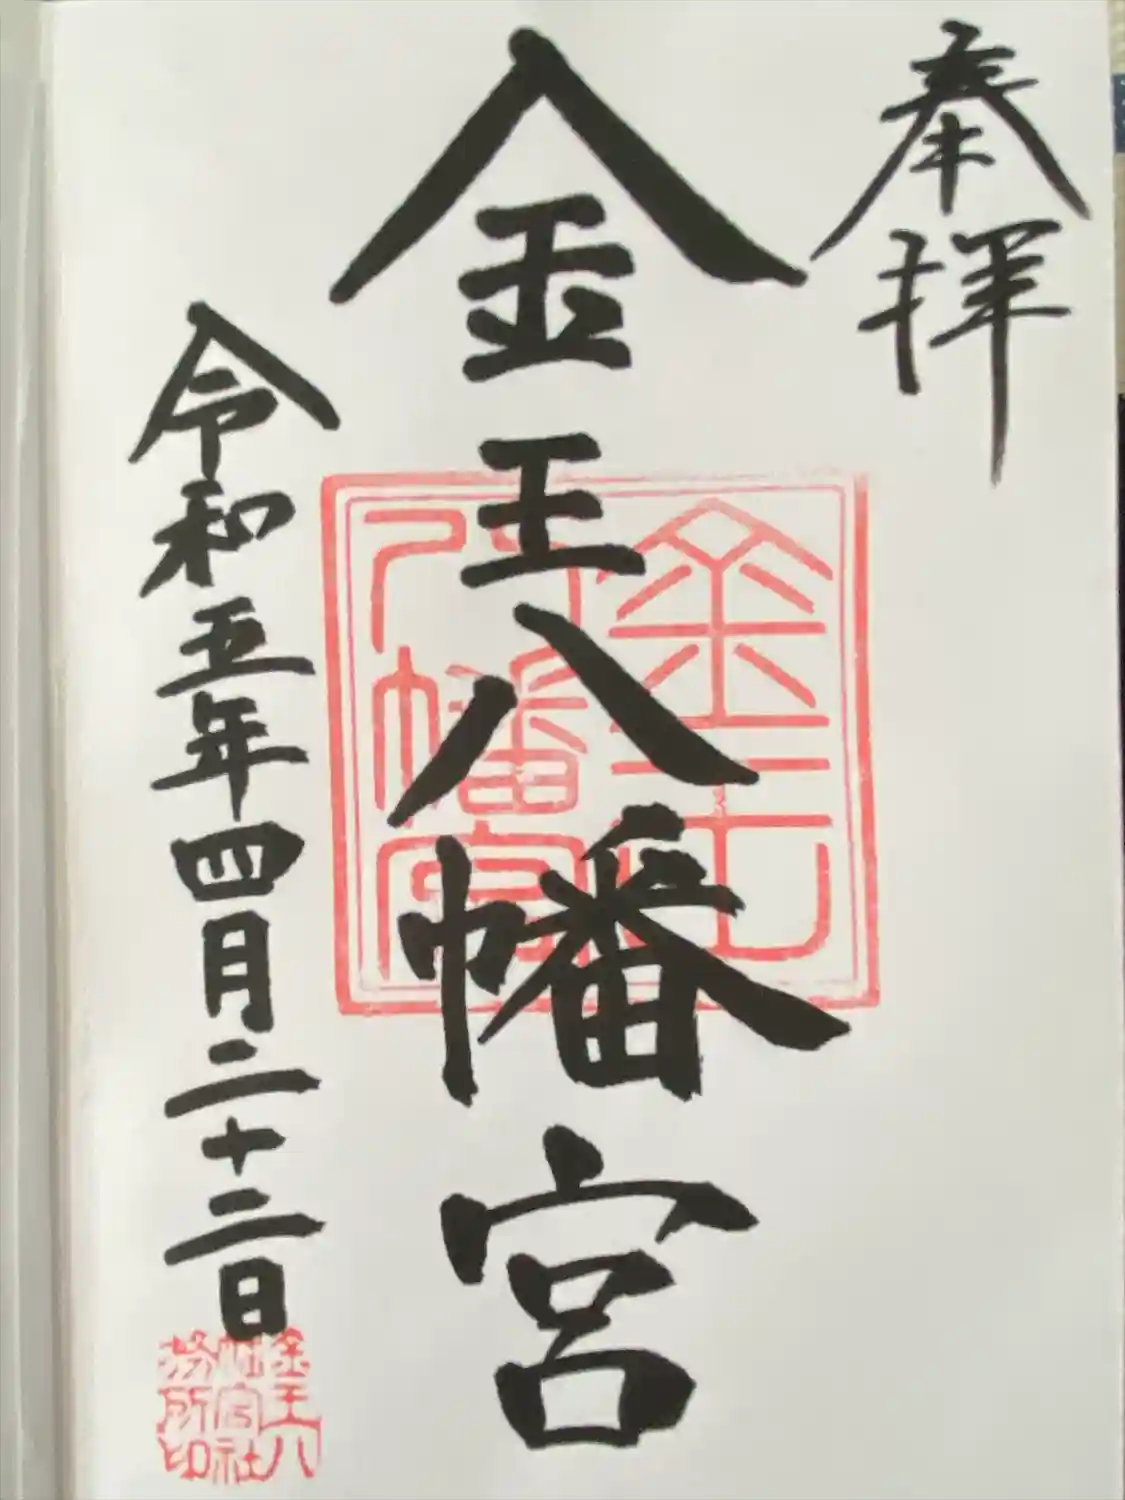 奉拝
金王八幡宮
令和五年四月二十二日
金王八幡宮
金王八幡宮社務所印